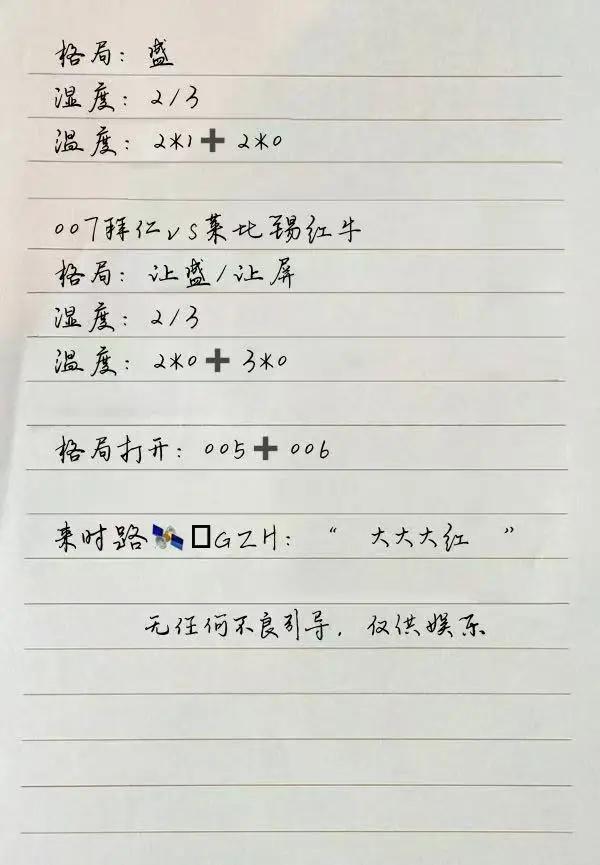 格局：盛
湿度：2/3
温度：2*1➕2*0
007拜仁vs莱比锡红牛
格局：让盛/让屏
湿度：2/3
温度：2*0➕3*0
格局打开：005➕006
来时路🛰️□GZH：“ 大大大红 ”
无任何不良引导，仅供娱乐